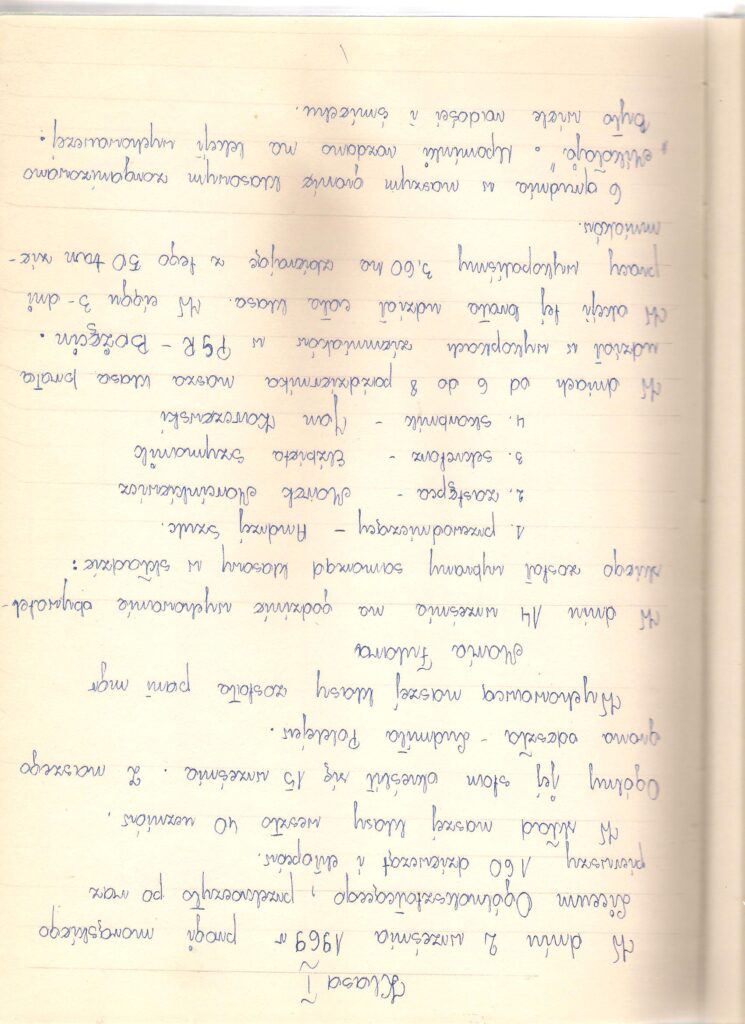 Klasa I
W dniu 2 września 1969 r progi morąskiego
Liceum Ogólnokształcącego, przekroczyło po raz
pierwszy 160 dziewcząt i chłopców.
W skład naszej klasy weszło 40 uczniów.
Ogólny jej stan określił się 15 września. Z naszego
grona odeszła - Ludmiła Polelejew.
Wychowawcą naszej klasy została pani mgr
Maria Fulara
W dniu 14 września na godzinie wychowania obywatel-
skiego został wybrany samorząd klasowy w składzie:
1. przewodniczący - Andrzej Szulc.
2. zastępca - Marek Marcinkiewicz
3. sekretarz - Elżbieta Szymanik
4. skarbnik - Jan Karczewski
W dniach od 6 do 8 października nasza klasa brała
udział w wykopkach ziemniaków w PGR - Bożęcin.
W akcji tej brała udział cała klasa. W ciągu 3-dni
pracy wykopaliśmy 3,60 ha zbierając z tego 50 ton zie-
mniaków.
6 grudnia w naszym gronie klasowym zorganizowano
"Mikołaja". Upominki rozdano na lekcji wychowawczej:
było wiele radości i śmiechu.